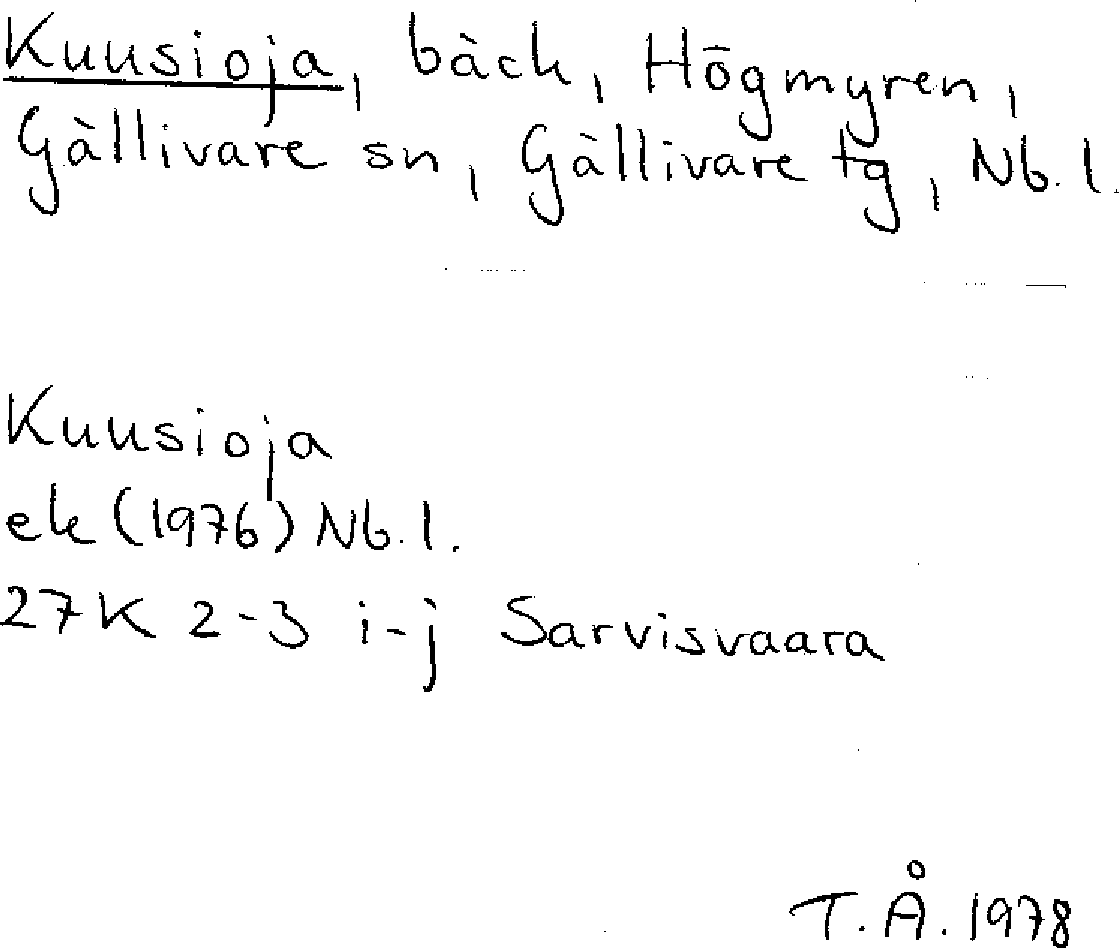 Kuusioja, bäck, Högmyren,
Gällivare sn, Gällivare tg, Nb. l.
Kuusioja
ek (1976) Nb. l.
27K 2-3 i-j Sarvisvaara
T.Å. 1978